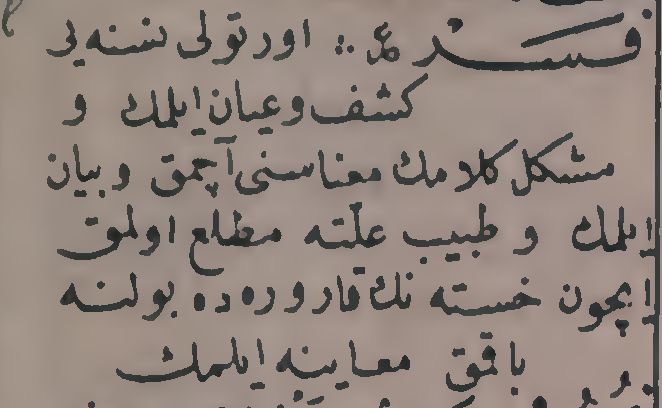 فسر ع اورتولى نسنه يى
كشف وعيان ايلمك و
مشكل كلامك معناسنى آچمق وبيان
ايلمك و طبيب علّته مطلع اولمق
ايچون خسته نك قاروره ده بولنه
باقمق معاينه ايلمك